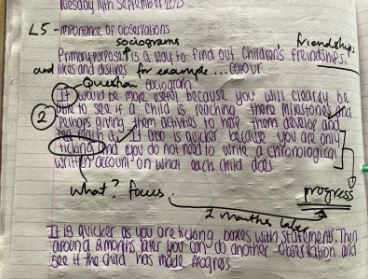 Tuesday 14th September 2015
L5 - importance of observations
sociograms
friendship
Primary purpose is a way to find out children's freindships,
and likes and dislikes for example... colour
Question sociogram
2 It would be more useful because you will clearly be
able to see if a child is reaching there milestones and
perhaps giving them activites to help them develop and
It also is quicker because you are only
ticking and you do not need to write a chronological
written account on what each child does.
what? focus.
progress
2 months later
It is quicker as you are ticking boxes with statements. Then
around 2 months later you can do another observation and
see if the child has made progress